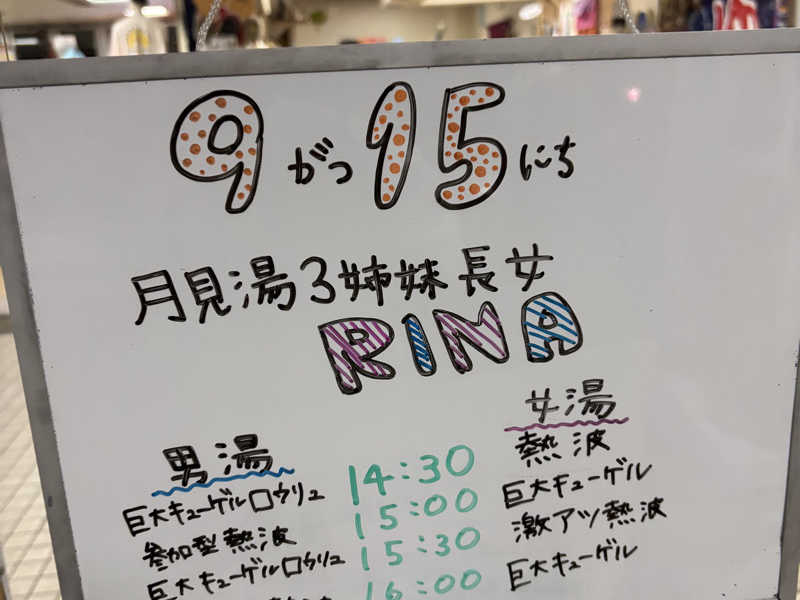 9がつ15にち
月見湯3姉妹長女
RINA
男湯
女湯
14:30 熱波
巨大キューゲルロウリュ 15:00 巨大キューゲル
参加型熱波 15:30 激アツ熱波
巨大キューゲルロウリュ 16:00 巨大キューゲル